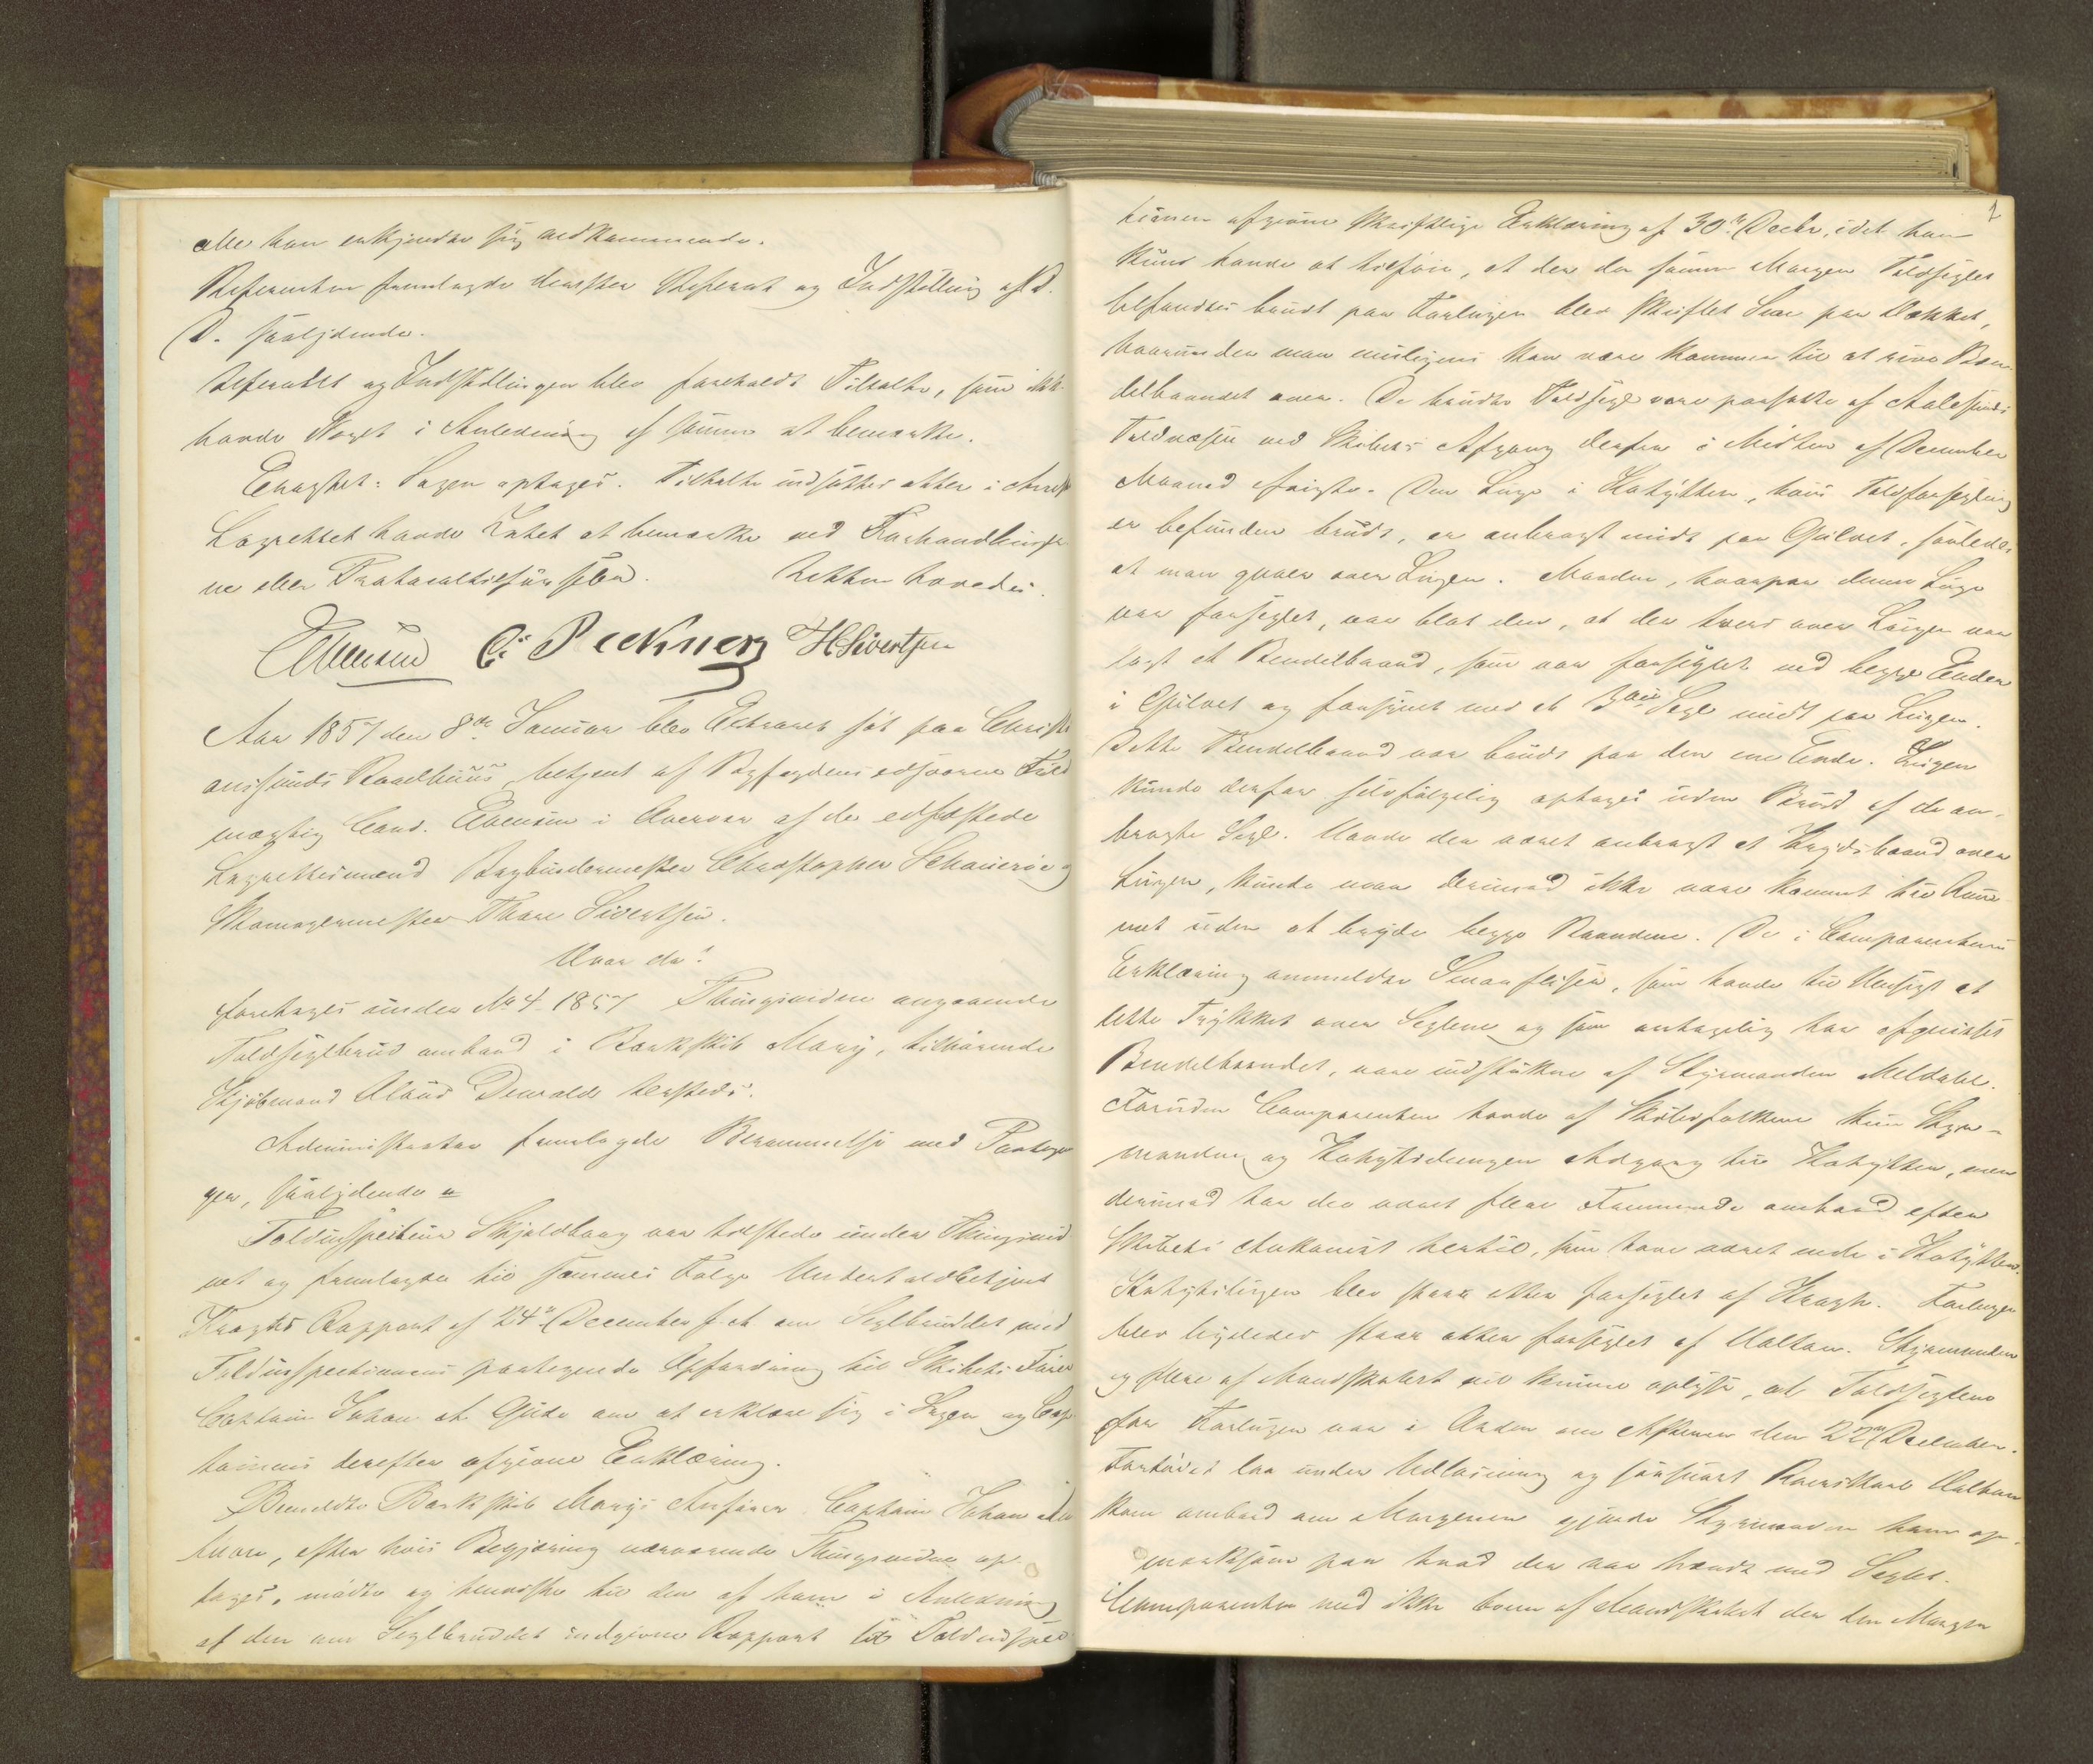 eller han erkjender sig vedkommende.
Referenten fremlagde derefter Referat og Indstilling af D.
D. saalydende.
Referatet og Indstillingen blev foreholdt Tiltalte, som ikke
havde Noget i Anledning af samme at bemærke.
Eragtet: Sagen optages. Tiltalte indsættes atter i Arrest
Lagrettet havde Intet at bemærke ved Forhandlinger
ne eller Protocoltilførselen. Retten hævedes.
H Sivertsen
Aar 1857 den 8de Januar blev Extraret sat paa Christi
anssunds Raadhuus, betjent af Byfogdens edsvorne Fuld
mægtig Cand. Evensen i Overvær af de edfæstede
Lagrettesmænd Bogbindermester Christopher Schancke og
Skomagermester Thore Sivertsen.
Hvor da:
foretoges under No 4 1857 Thingsvidne angaaende
Toldseglbrud ombord i Barkskib Mary, tilhørende
Kjøbmand Claus Dewald hersteds.
Administrator fremlagde Berammelse med Paateg
ninger, saalydende
Toldinspecteur Skjoldborg var tilstede under Thingsvid
net og fremlagde til sammes Følge Undertoldbetjent
Kraghs Rapport af 24de December f. A. om Seglbruddet med
Toldinspecteurens paategnede Opfordring til Skibets Fører
Captain Johan at Gude om at erklære sig i Sagen og Cap
tainens derefter afgivne Erklæring.
Bemeldte Barkskib Marys Anfører Captain Johan
hvem, efter hvis Begjæring nærværende Thingsvidne op
tages, mødte og henviste til den af ham i Anledning
af den om Seglbruddet indgivne Rapport til Toldinspec
1
teuren afgivne skriftlige Erklæring af 30te Decbr, idet han
kuns havde at tilføie, at den da samme Morgen Toldseglet
befandtes brudt paa Forlugen blev skiftet Seil paa Dækket,
hvorunder man muligens kan være kommen til at rive Ben
delbaandet over. De brudte Toldsegl vare paasatte af Aalesunds
Toldvæsen ved Skibets Afgang derfra i Midten af December
Maaned sidste. Den Luge i Kahytten, hvis Toldforsegling
er befunden brudt, er anbragt midt paa Gulvet, saaledes
at man gaaer over Lugen. Maaden, hvorpaa denne Luge
var forseglet, var blot den, at der tvers over Lugen var
lagt et Bendelbaand, som var forseglet ved begge Ender
i Gulvet og forsynet med et 3die Segl midt paa Lugen.
Dette Bendelbaand var brudt paa den ene Ende. Lugen
kunde derfor selvfølgelig optages uden Brud af de an-
bragte Segl. Havde der været anbragt et Krydsbaand over
Lugen, kunde man derimod ikke være kommet til Rum
met uden at bryde begge Baandene. De i Comparentens
Erklæring anmeldte Smaaflisen, som havde til Hensigt at
lette Trykket over Seglene og som antagelig har afgnidset
Bendelbaandet, vare indstukne af Styrmanden Meldahl.
Foruden Comparenten havde af Skibsfolkene kun Styr-
manden og Kahytsdrengen Adgang til Kahytten, men
derimod har der været flere Fremmede ombord efter
Skibets Ankomst hertil, som have været nede i Kahytten.
Kahytslugen blev strax atter forseglet af Kragh. Forlugen
blev ligeledes strax atter forseglet af Holten. Styrmanden
og flere af Mandskabet vil kunne oplyse, at Toldseglene
for Forlugen var i Orden om Aftenen den 22de December.
Fartøiet laa under Udlosning og saasnart Roerskarl Holten
kom ombord om Morgenen gjorde Styrmanden ham op-
mærksom paa hvad der var hændt med Seglet.
Comparenten ved ikke hvem af Mandskabet der den Morgen